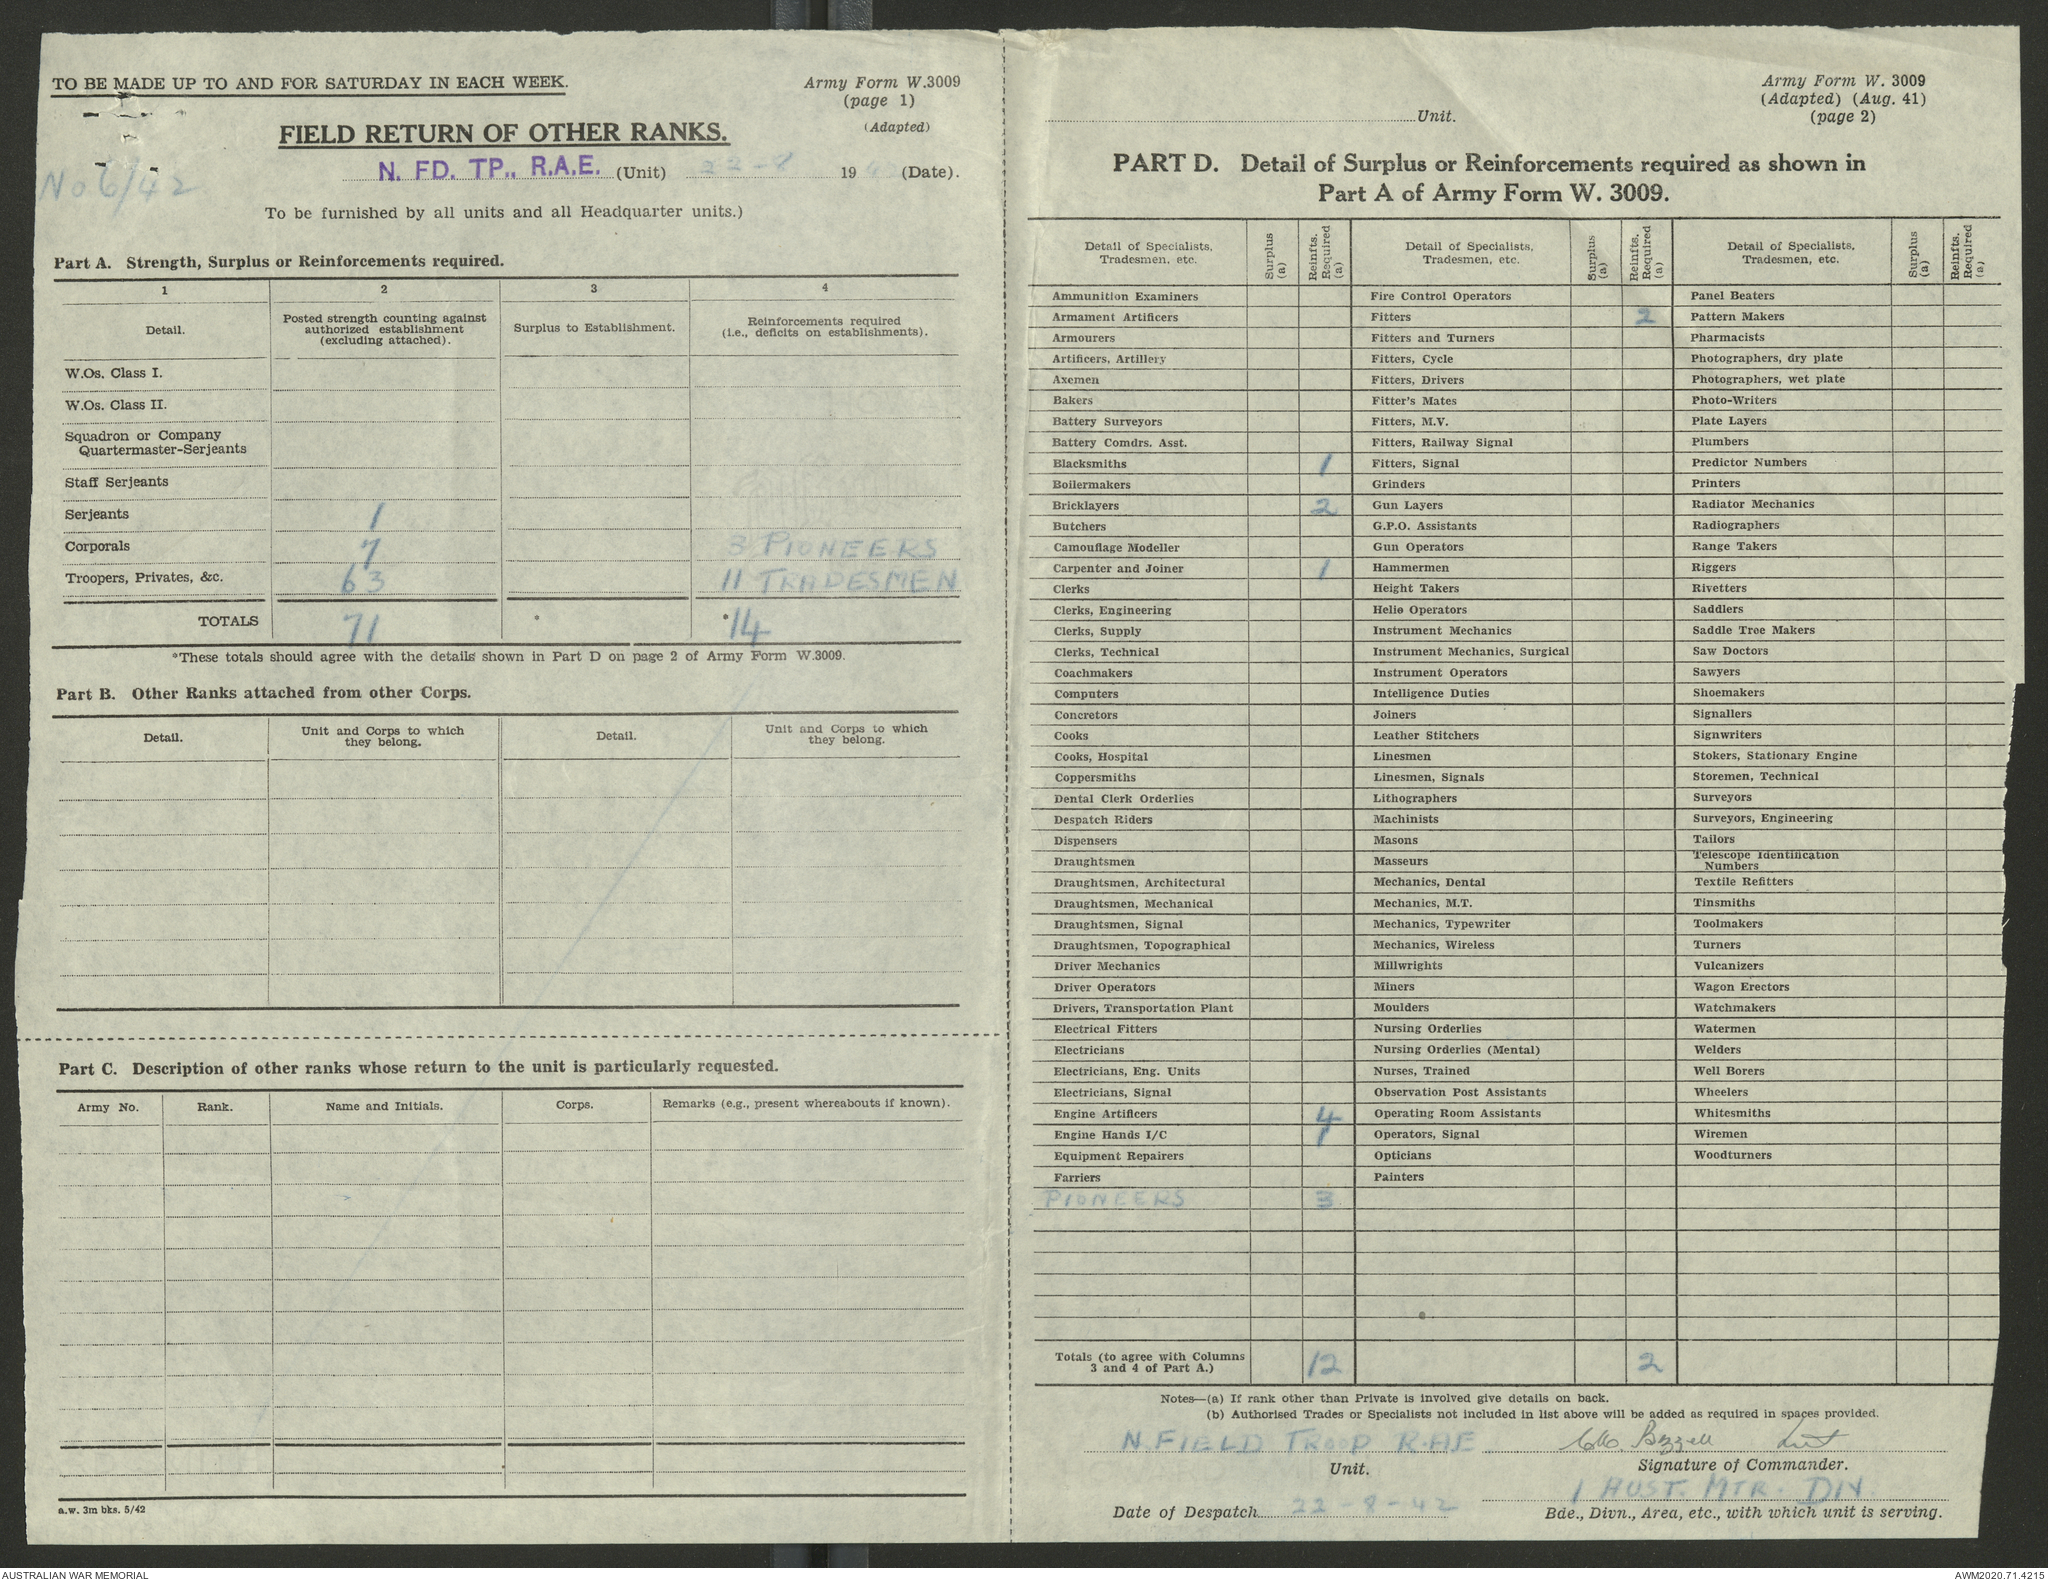 TO BE MADE UP TO AND FOR SATURDAY IN EACH WEEK.
Army Form W.3009
(page 1)
(Adapted)
FIELD RETURN OF OTHER RANKS.
No 6/42
N. FD. TP., R.A.E. (Unit) 22-8 1942 (Date).
To be furnished by all units and all Headquarter units.)
Part A. Strength, Surplus or Reinforcements required.
1 2 3 4
Detail.
Posted strength counting against
authorized establishment
(excluding attached).
Surplus to Establishment.
Reinforcements required
(i.e., deficits on establishments).
W.Os. Class I.
W.Os. Class II.
Squadron or Company
Quartermaster-Serjeants
Staff Serjeants
Serjeants 1
Corporals 7 3 PIONEERS
Troopers, Privates, &c. 63 11 TRADESMEN
TOTALS 71 * *14
*These totals should agree with the details shown in Part D on page 2 of Army Form W.3009.
Part B. Other Ranks attached from other Corps.
Detail.
Unit and Corps to which
they belong.
Detail.
Unit and Corps to which
they belong.
Part C. Description of other ranks whose return to the unit is particularly requested.
Army No. Rank. Name and Initials. Corps. Remarks (e.g., present whereabouts if known).
a.w. 3m bks. 5/42
Army Form W. 3009
(Adapted) (Aug. 41)
(page 2)
Unit.
PART D. Detail of Surplus or Reinforcements required as shown in
Part A of Army Form W. 3009.
Detail of Specialists,
Tradesmen, etc.
Surplus
(a)
Reinfts.
Required
(a)
Detail of Specialists,
Tradesmen, etc.
Surplus
(a)
Reinfts.
Required
(a)
Detail of Specialists,
Tradesmen, etc.
Surplus
(a)
Reinfts.
Required
(a)
Ammunition Examiners Fire Control Operators Panel Beaters
Armament Artificers Fitters 2 Pattern Makers
Armourers Fitters and Turners Pharmacists
Artificers, Artillery Fitters, Cycle Photographers, dry plate
Axemen Fitters, Drivers Photographers, wet plate
Bakers Fitter's Mates Photo-Writers
Battery Surveyors Fitters, M.V. Plate Layers
Battery Comdrs. Asst. Fitters, Railway Signal Plumbers
Blacksmiths 1 Fitters, Signal Predictor Numbers
Boilermakers Grinders Printers
Bricklayers 2 Gun Layers Radiator Mechanics
Butchers G.P.O. Assistants Radiographers
Camouflage Modeller Gun Operators Range Takers
Carpenter and Joiner 1 Hammermen Riggers
Clerks Height Takers Rivetters
Clerks, Engineering Helio Operators Saddlers
Clerks, Supply Instrument Mechanics Saddle Tree Makers
Clerks, Technical Instrument Mechanics, Surgical Saw Doctors
Coachmakers Instrument Operators Sawyers
Computers Intelligence Duties Shoemakers
Concretors Joiners Signallers
Cooks Leather Stitchers Signwriters
Cooks, Hospital Linesmen Stokers, Stationary Engine
Coppersmiths Linesmen, Signals Storemen, Technical
Dental Clerk Orderlies Lithographers Surveyors
Despatch Riders Machinists Surveyors, Engineering
Dispensers Masons Tailors
Draughtsmen Masseurs Telescope Identification
Numbers
Draughtsmen, Architectural Mechanics, Dental Textile Refitters
Draughtsmen, Mechanical Mechanics, M.T. Tinsmiths
Draughtsmen, Signal Mechanics, Typewriter Toolmakers
Draughtsmen, Topographical Mechanics, Wireless Turners
Driver Mechanics Millwrights Vulcanizers
Driver Operators Miners Wagon Erectors
Drivers, Transportation Plant Moulders Watchmakers
Electrical Fitters Nursing Orderlies Watermen
Electricians Nursing Orderlies (Mental) Welders
Electricians, Eng. Units Nurses, Trained Well Borers
Electricians, Signal Observation Post Assistants Wheelers
Engine Artificers 4 Operating Room Assistants Whitesmiths
Engine Hands I/C 1 Operators, Signal Wiremen
Equipment Repairers Opticians Woodturners
Farriers Painters
PIONEERS 3
Totals (to agree with Columns
3 and 4 of Part A.) 12 2
Notes—(a) If rank other than Private is involved give details on back.
(b) Authorised Trades or Specialists not included in list above will be added as required in spaces provided.
N. FIELD TROOP R.AE Bizzell Lieut
Unit. Signature of Commander.
1 AUST. MTR. DIV.
Date of Despatch 22-8-42 Bde., Divn., Area, etc., with which unit is serving.
AUSTRALIAN WAR MEMORIAL
AWM2020.71.4215